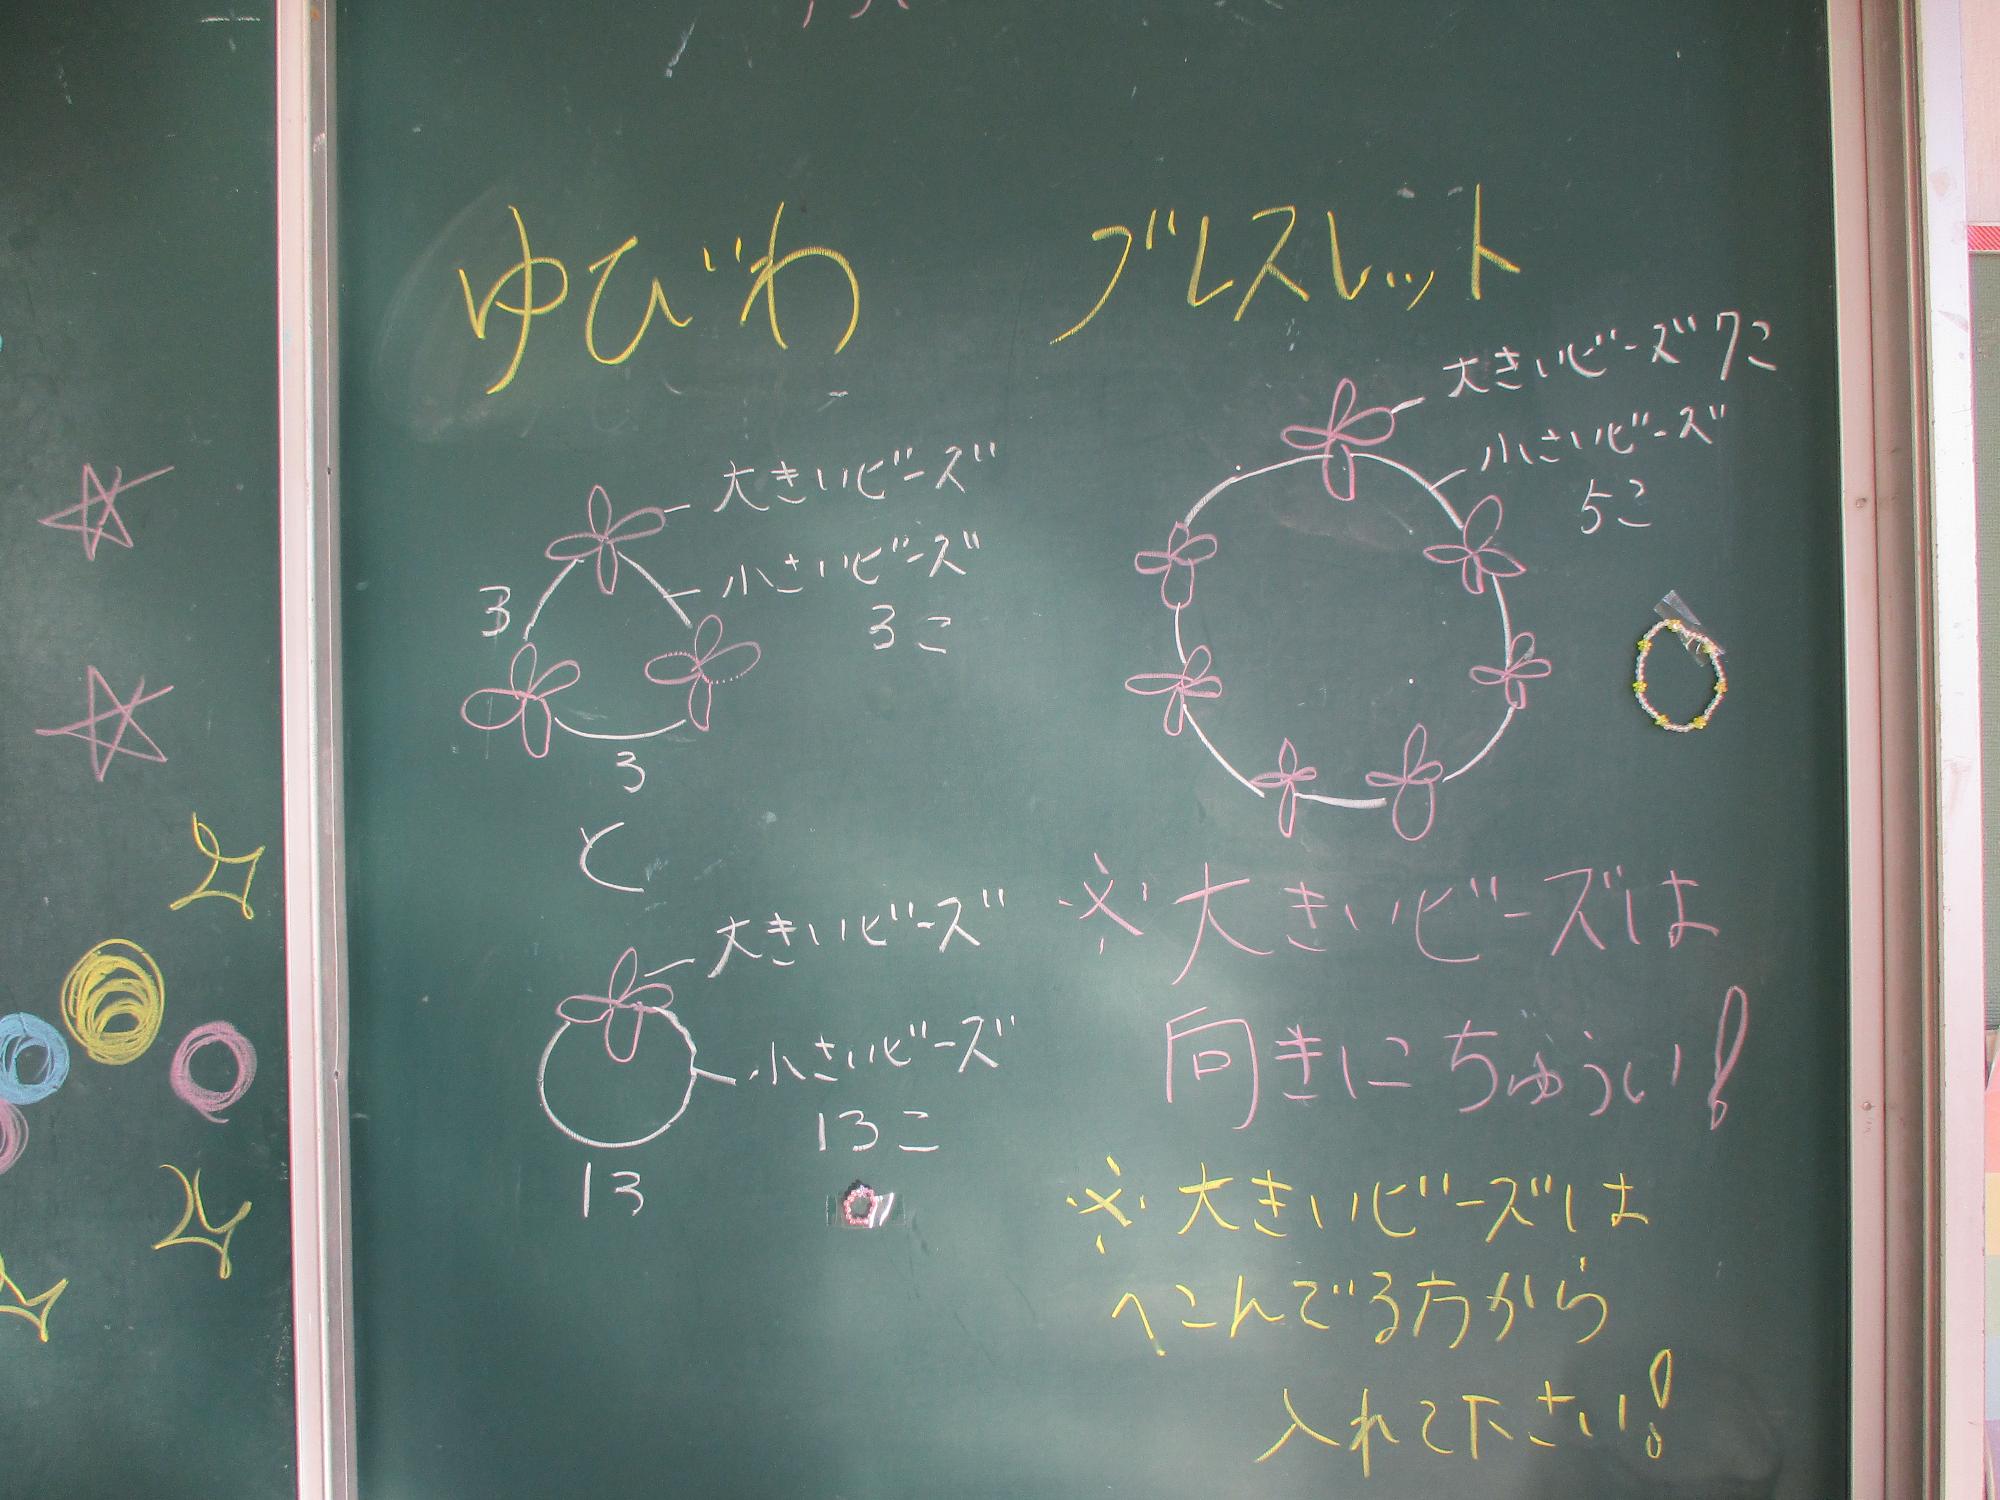 ゆびわ
大きいビーズ
小さいビーズ
3こ
3
3
と
大きいビーズ
小さいビーズ
13こ
13
ブレスレット
大きいビーズ7こ
小さいビーズ
5こ
※大きいビーズは
向きにちゅうい!
※大きいビーズは
へこんでる方から
入れて下さい!